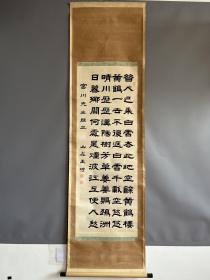 昔人已乘白雲去此地空餘黃鶴樓
黃鶴一去不復返白雲千載空悠悠
晴川歷歷漢陽樹芳草萋萋鸚鵡洲
日暮鄉關何處是煙波江上使人愁
宮川先生雅正